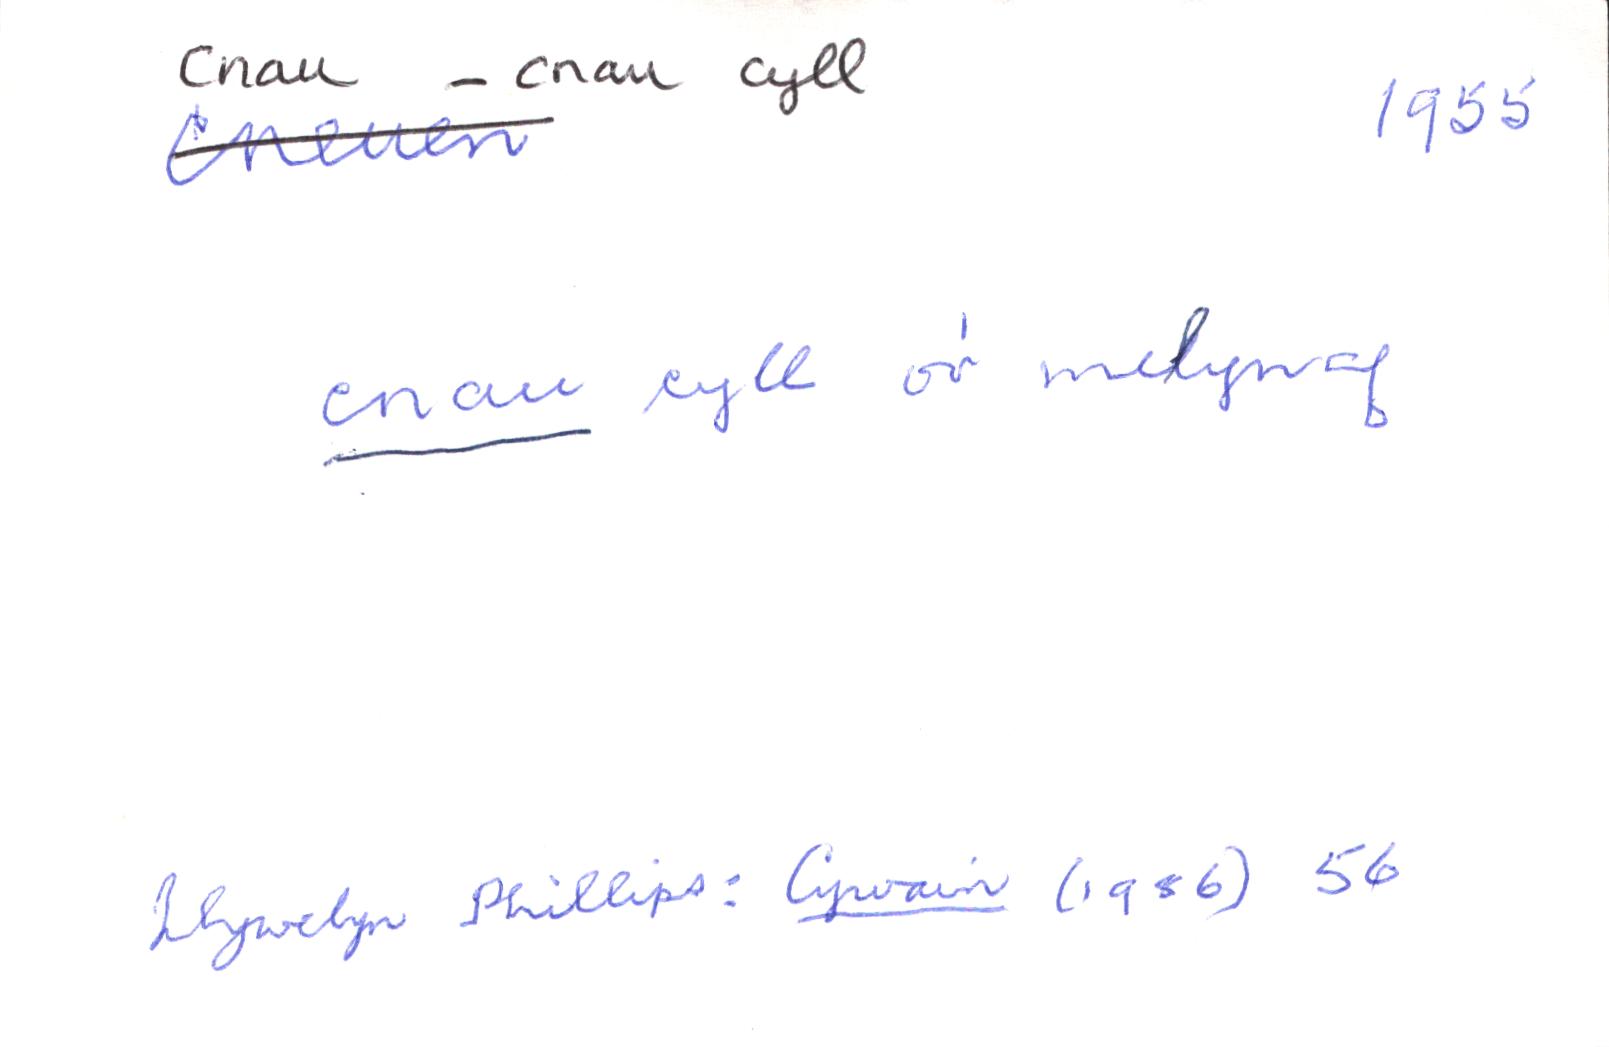 Cnau – cnau cyll
Cneuen
1955
cnau cyll o'r melynaf
Llywelyn Phillips: Cywain (1986) 56